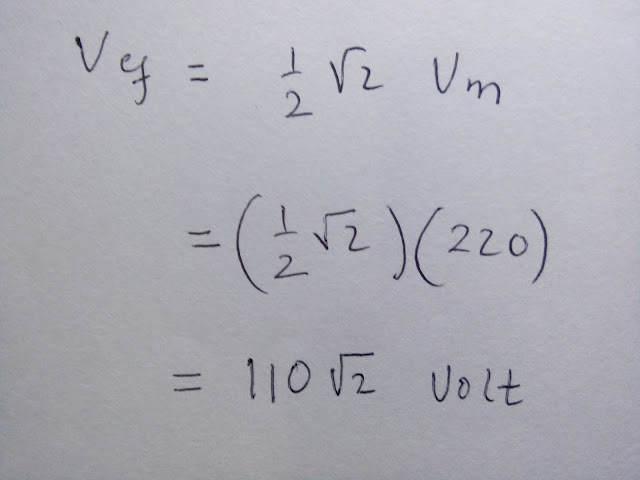 Vef = 1/2 √2 Vm
= (1/2 √2)(220)
= 110 √2 Volt